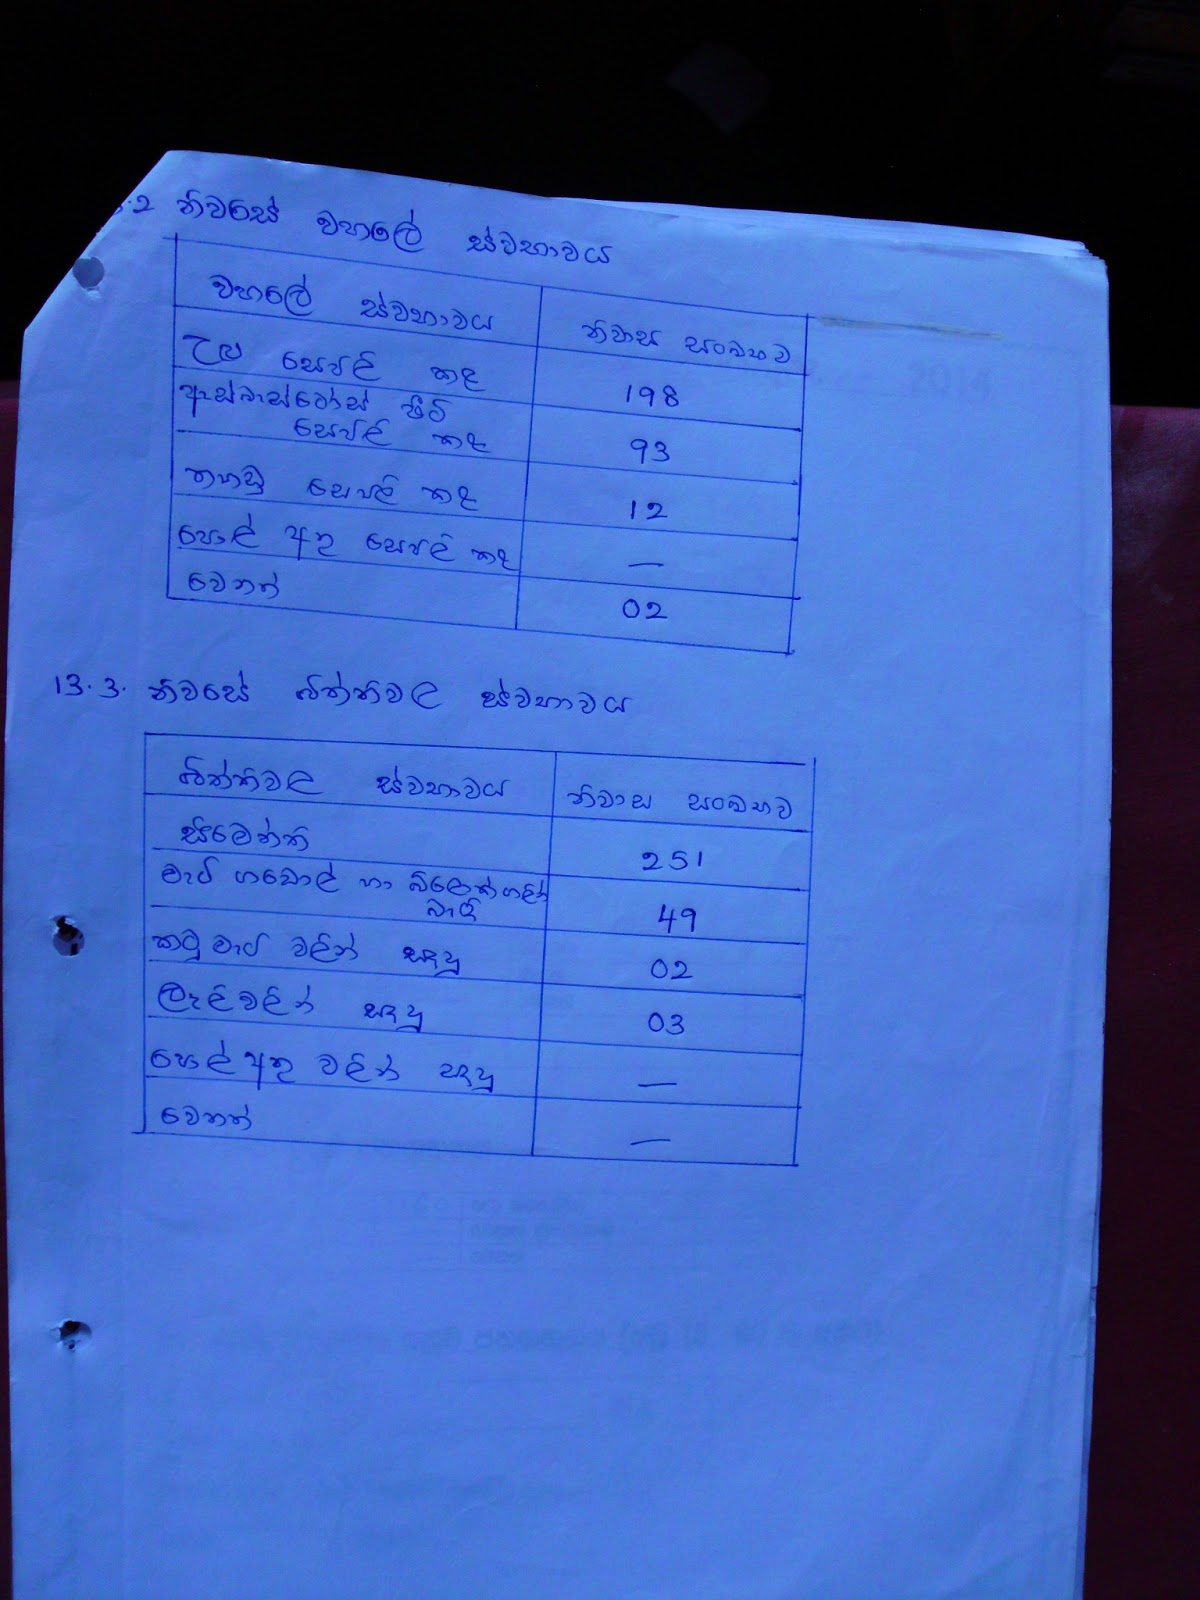 .2 නිවසේ වහලේ ස්වභාවය
වහලේ ස්වභාවය නිවාස සංඛ්‍යාව
උළු සෙවිලි කළ 198
ඇස්බැස්ටෝස් ෂීට්
සෙවිලි කළ 93
තහඩු සෙවිලි කළ 12
පොල් අතු සෙවිලි කළ —
වෙනත් 02
13.3. නිවසේ බිත්තිවල ස්වභාවය
බිත්තිවල ස්වභාවය නිවාස සංඛ්‍යාව
සිමෙන්ති 251
මැටි ගඩොල් හා බ්ලොක් ගලින්
බැඳි 49
කටු මැටි වලින් සෑදූ 02
ලෑලි වලින් සෑදූ 03
පොල් අතු වලින් සෑදූ —
වෙනත් —